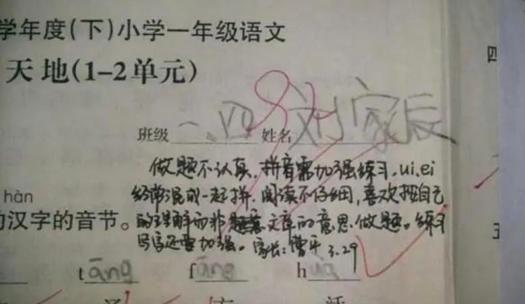 学年度(下)小学一年级语文
天地(1-2单元)
四
班级 一.四 姓名 刘家辰
做题不认真,拼音需加强练习,ui,ei
经常混成一起拼,阅读不仔细,喜欢按自己
hàn
的理解而非题意文章的意思做题。练习
汉字的音节。
写字还需加强。家长: 3.29
五
tāng fāng huó